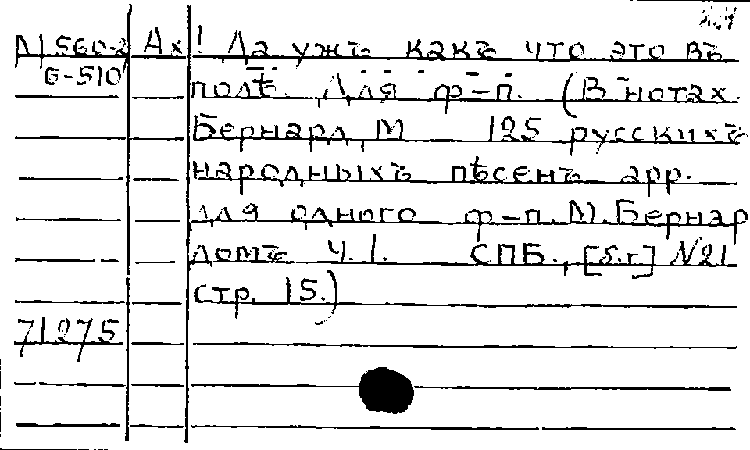 М 560-2 Ах! Да ужъ какъ что это въ
Б-510 полѣ. Для ф-п. (В нотах.
Бернард, М 125 русскихъ
народныхъ пѣсенъ арр.
для одного ф-п. М. Бернар
домъ Ч. I. СПБ., [б.г.] №21
стр. 15.)
71275